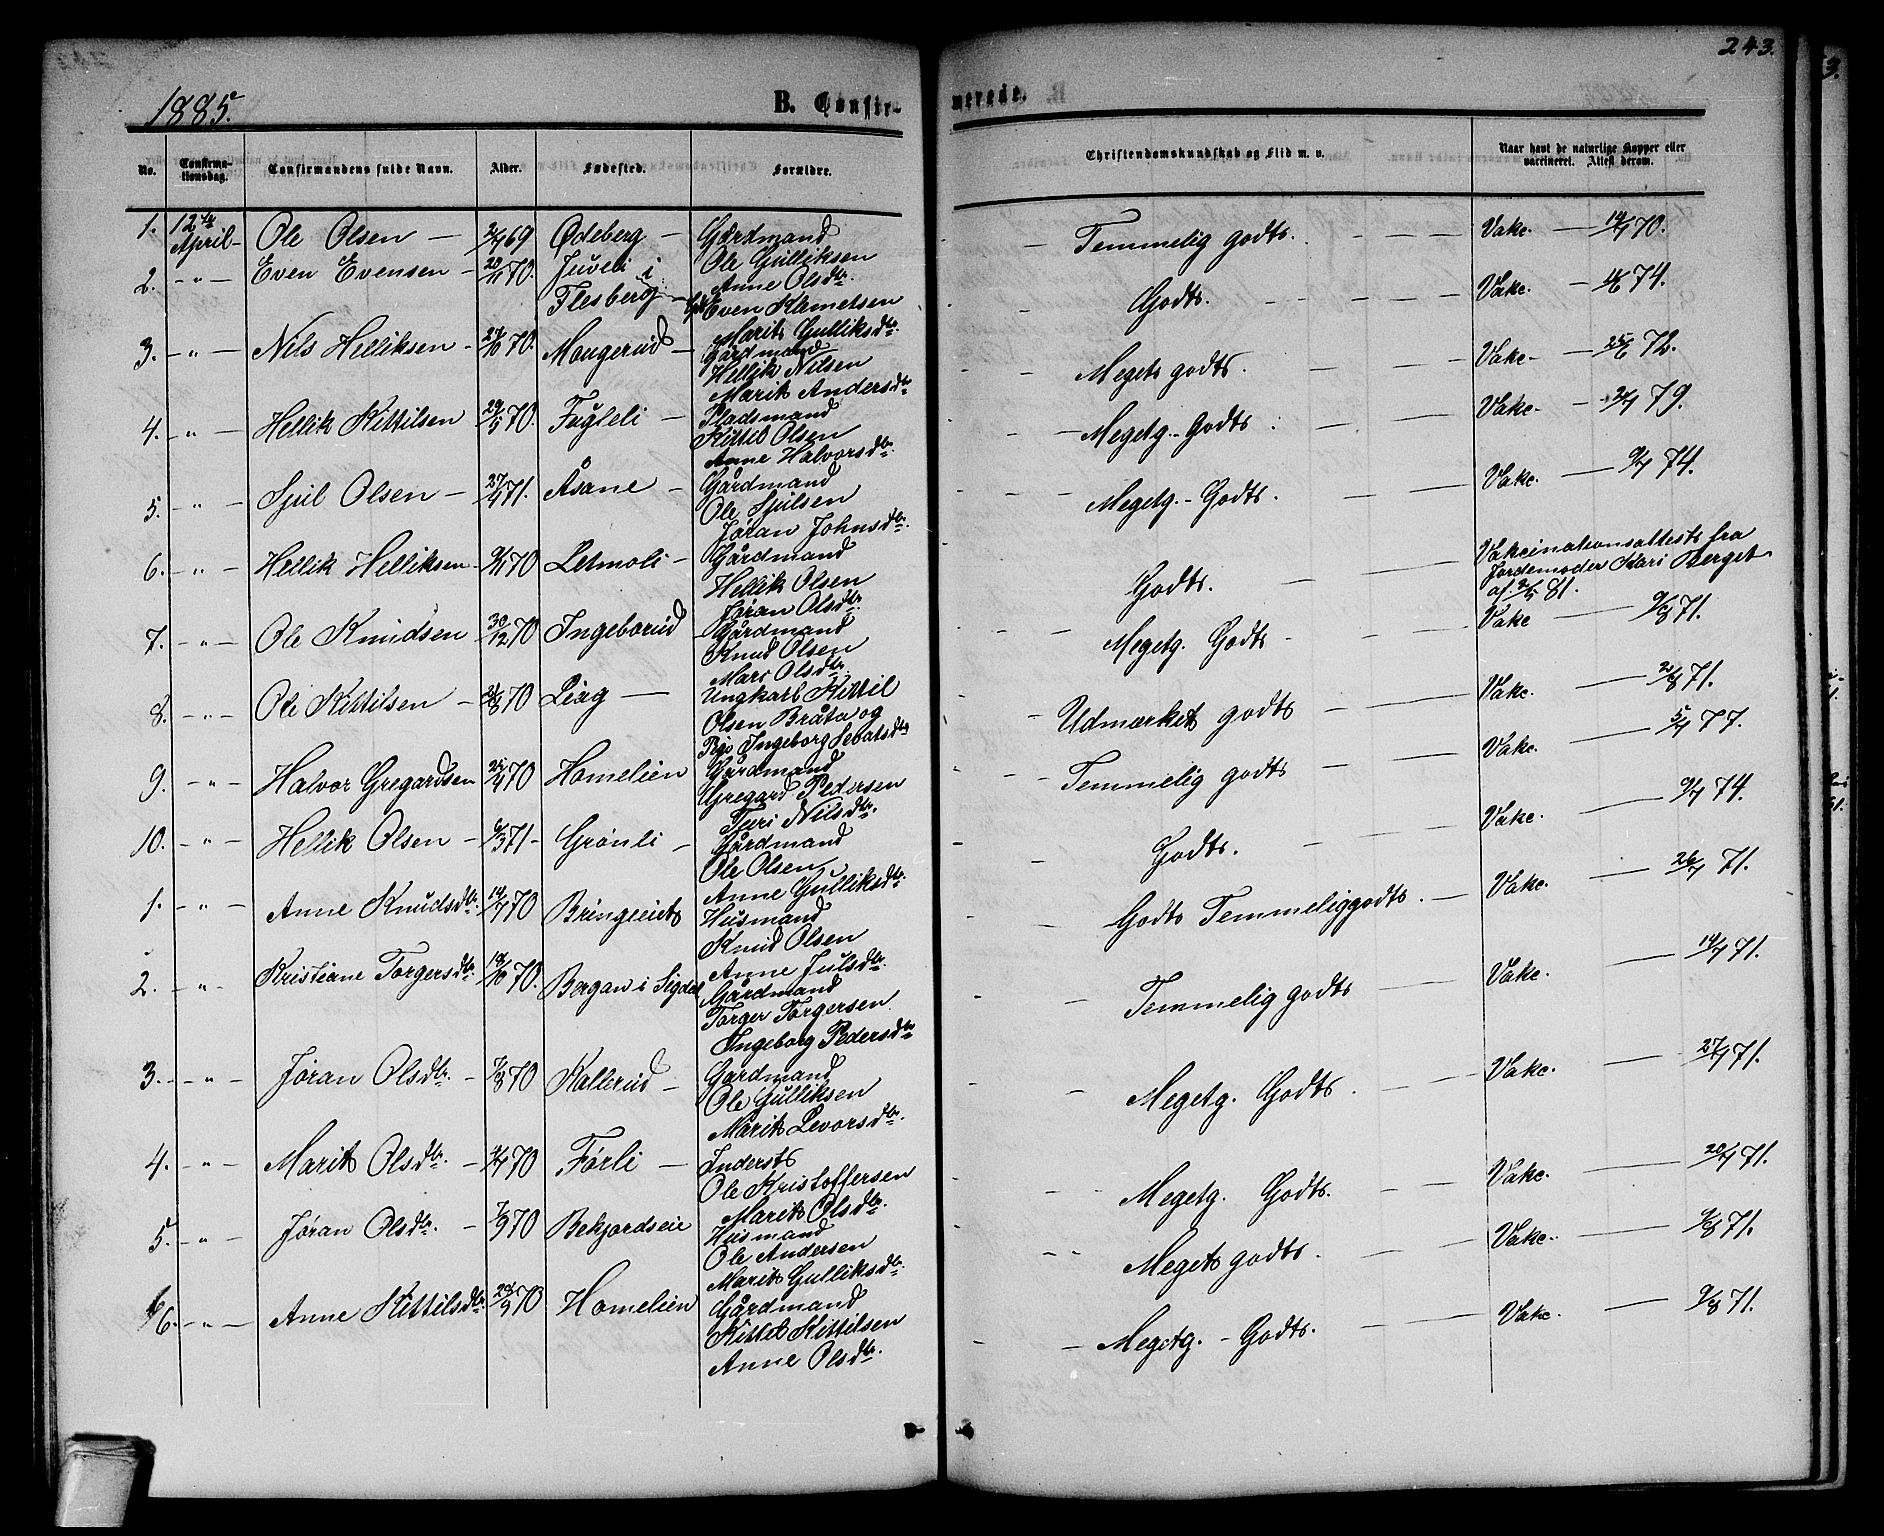 243.
1885.
B. Confir-
merede.
No.
Confirma-
tionsdag.
Confirmandens fulde Navn.
Alder.
Fødested.
Forældre.
Christendomskundskab og Flid m. v.
Naar havt de naturlige Kopper eller
vaccineret. Attest derom.
1. 12te April Ole Olsen 69 Ødeberg Gårdmand
Ole Gulliksen
Anne Olsdtr.
Temmelig godts. Vakc. 70.
2. " Even Evensen 70. Juveli i
Flesberg Even
Marit Gulliksdtr.
Godts. Vakc. 74.
3. " Nils Helliksen 70. Maugerud Gårdmand
Hellik Nilsen
Marit Andersdtr
Megets godts. Vakc. 25/6 72.
4. " Hellik Kittilsen 29/5 70. Fogleli Pladsmand
Kittil Olsen
Anne Halvorsdtr.
Megetg. Godts. Vakc. 79.
5. " Sjul Olsen 27/4 71. Åsane Gårdmand
Ole Sjulsen
Jøran Johnsdtr.
Megetg. Godts. Vakc. 74.
6. " Hellik Helliksen 70 Letmoli Gårdmand
Hellik Olsen
Jøran Olsdtr.
Godts. Vakcinationsattests fra
Jordemoder Kari Berget
af 81.
7. " Ole Knudsen 30/12 70 Ingeborud Gårdmand
Knud Olsen
Mari Olsdtr.
Megetg. Godts Vakc 9/8 71.
8. " Ole Kittilsen 70 Liag Ungkarl Kittil
Olsen Bråta og
Pige Ingeborg
Udmærkets godts Vakc. 71.
9. " Halvor Gregardsen 70 Homelien Gårdmand
Gregard Pedersen
Turi Nilsdtr.
Temmelig godts Vakc. 77.
10. " Hellik Olsen 71 Grønli Gårdmand
Ole Olsen
Anne Gulliksdtr.
Godts. Vakc. 74.
1. " Anne Knudsdtr. 70 Husmand
Knud Olsen
Anne Julsdtr.
Godts Temmeliggodts. Vakc. 26/7 71.
2. " Kristiane Torgersdtr. 18/10 70. Bergan i Sigdal Gårdmand
Torger Torgersen
Ingeborg Pedersdtr
Temmelig godts Vakc. 71.
3. " Jøran Olsdtr. 70 Kallerud Gårdmand
Ole Gulliksen
Marit Levorsdtr.
Megetg. Godts. Vakc. 71.
4. " Marit Olsdtr. 70 Førli Inderst
Ole Kristoffersen
Marit Olsdtr.
Megetg. Godts. Vakc. 71.
5. " Jøran Olsdtr. 7/9 70 Bekjordseie Husmand
Ole Andersen
Marit Gulliksdtr.
Megets godts. Vakc. 9/8 71.
6. " Anne Kittilsdtr. 70 Homelien Gårdmand
Kittil Kittilsen
Anne Olsdtr.
Megetg. Godts. Vakc. 9/8 71.